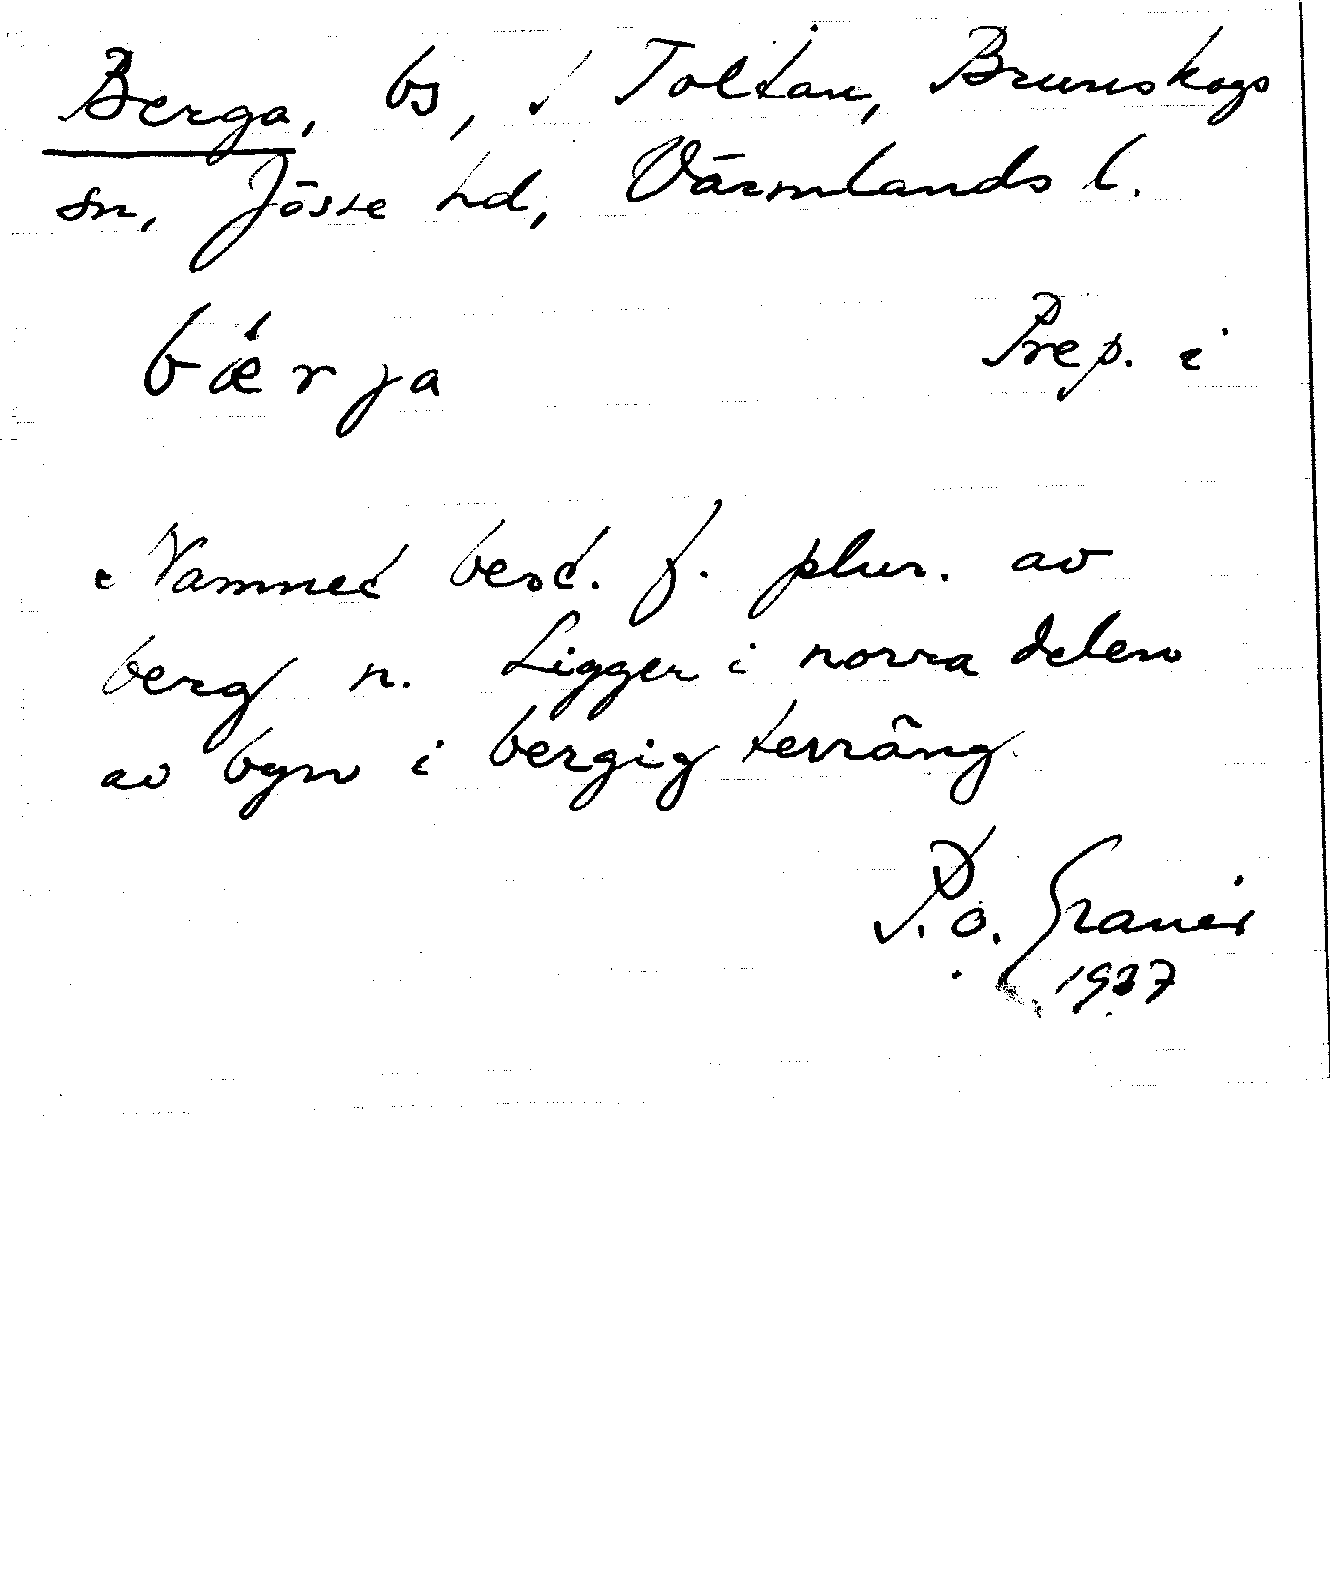 Berga, bs, i Toltan, Brunskogs
sn, Jösse hd, Värmlands l.
bǽrja Prep. i
Namnet best. f. plur. av
berg n. Ligger i norra delen
av byn i bergig terräng.
P. O. Granér
1937